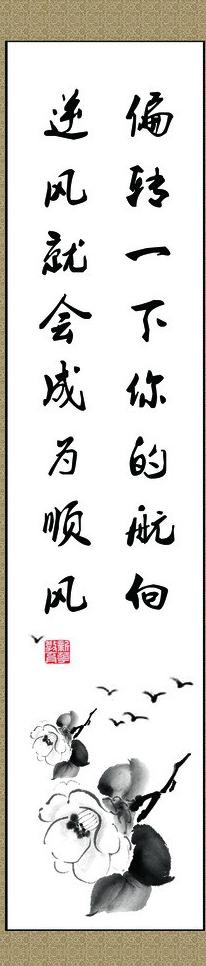 偏转一下你的航向
逆风就会成为顺风